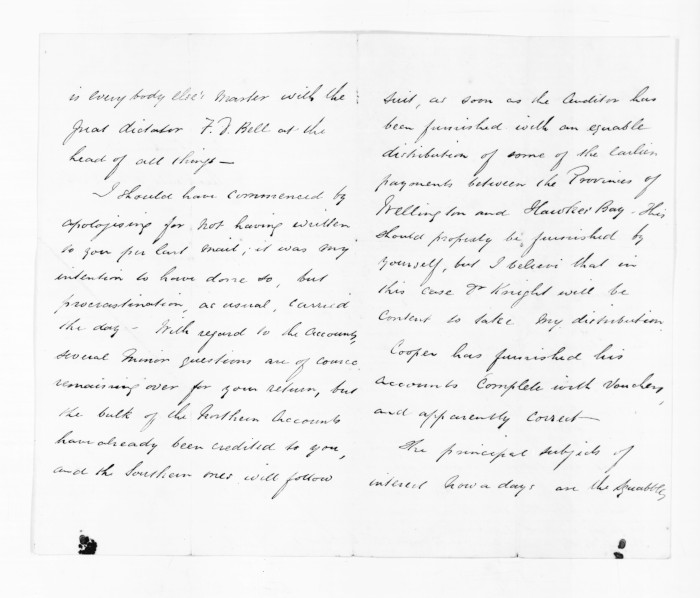 is everybody else's master with the
great dictator F. D. Bell at the
head of all things—
I should have commenced by
apologising for not having written
to you per last mail; it was my
intention to have done so, but
procrastination, as usual, carried
the day – With regard to the accounts,
several minor questions are of course
remaining over for your return, but
the bulk of the Northern Accounts
have already been credited to you,
and the Southern ones will follow
suit, as soon as the Auditor has
been furnished with an equable
distribution of some of the earlier
payments between the Provinces of
Wellington and Hawkes Bay. This
should properly be furnished by
yourself, but I believe that in
this case Dr Knight will be
content to take my distribution.
Cooper has furnished his
accounts complete with Vouchers,
and apparently correct—
The principal subjects of
interest now a days are the squabbles